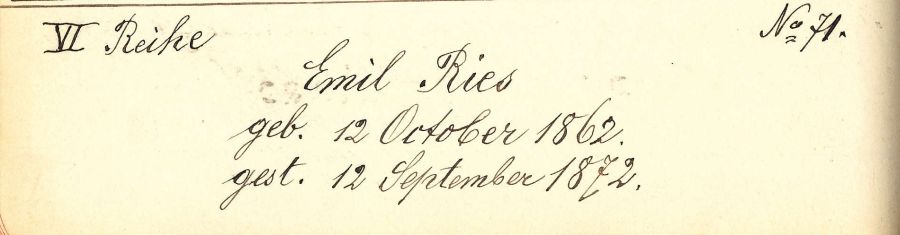 VI Reihe
No 71.
Emil Ries
geb. 12 October 1862.
gest. 12 September 1872.